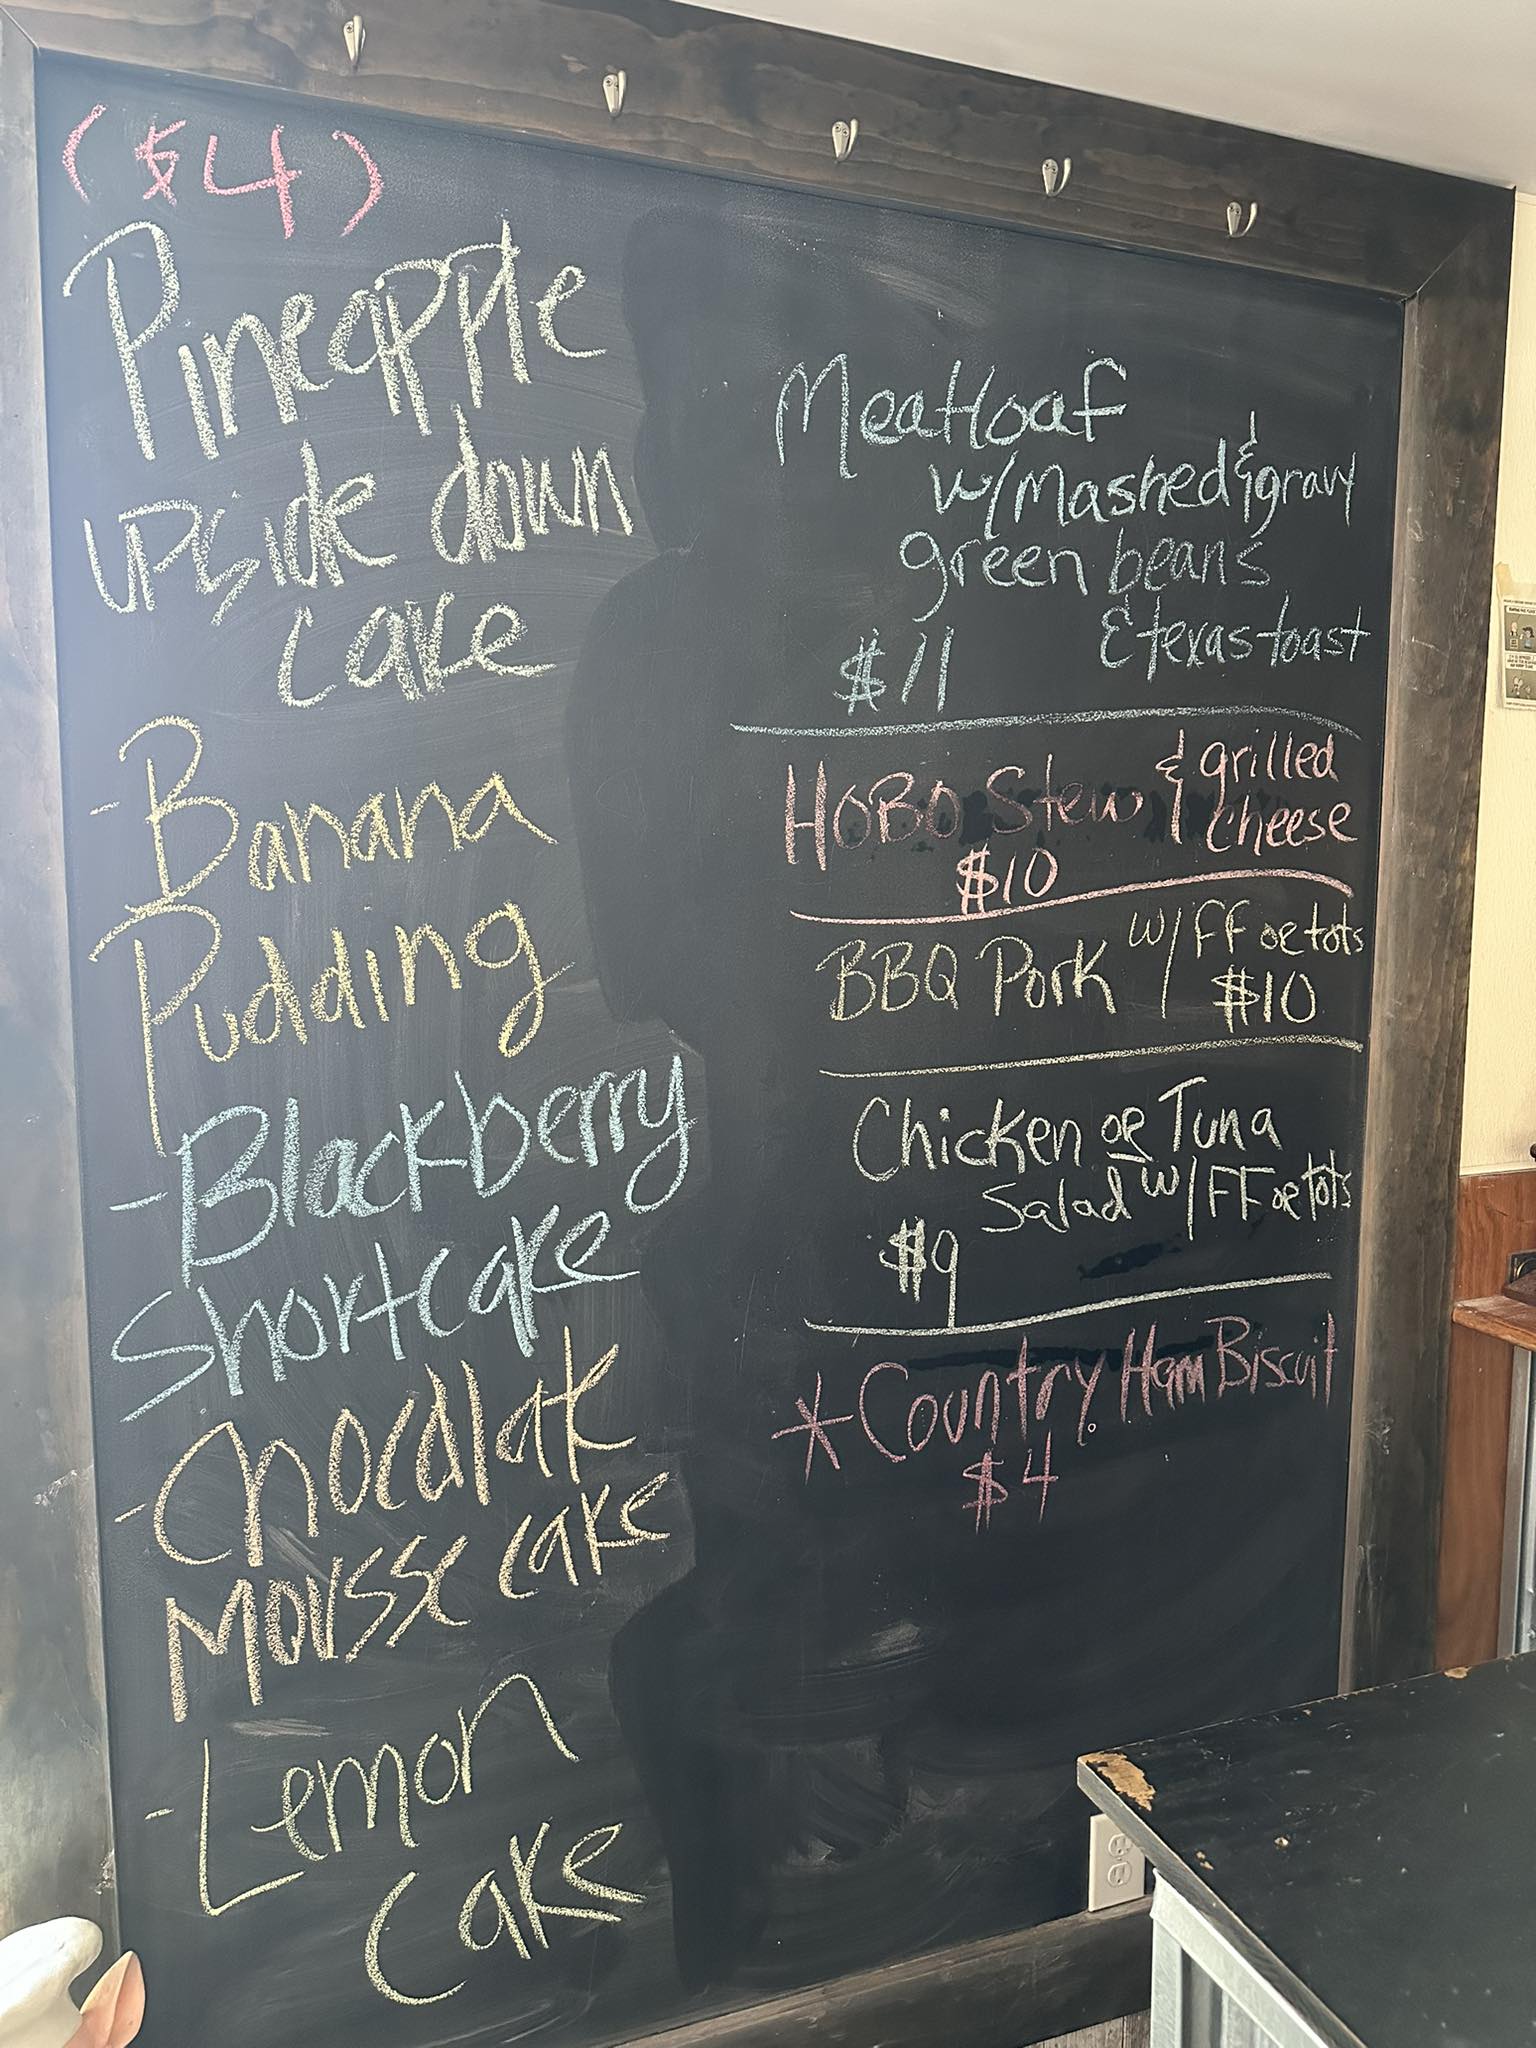 ($4)
Pineapple
upside down
cake
- Banana
Pudding
- Blackberry
Shortcake
- Chocolate
Mousse cake
- Lemon
cake
Meatloaf
w/ Mashed & gravy
green beans
& texas toast
$11
HOBO Stew & grilled
cheese
$10
BBQ Pork w/ FF or tots
$10
Chicken or Tuna
Salad w/ FF or tots
$9
* Country Ham Biscuit
$4